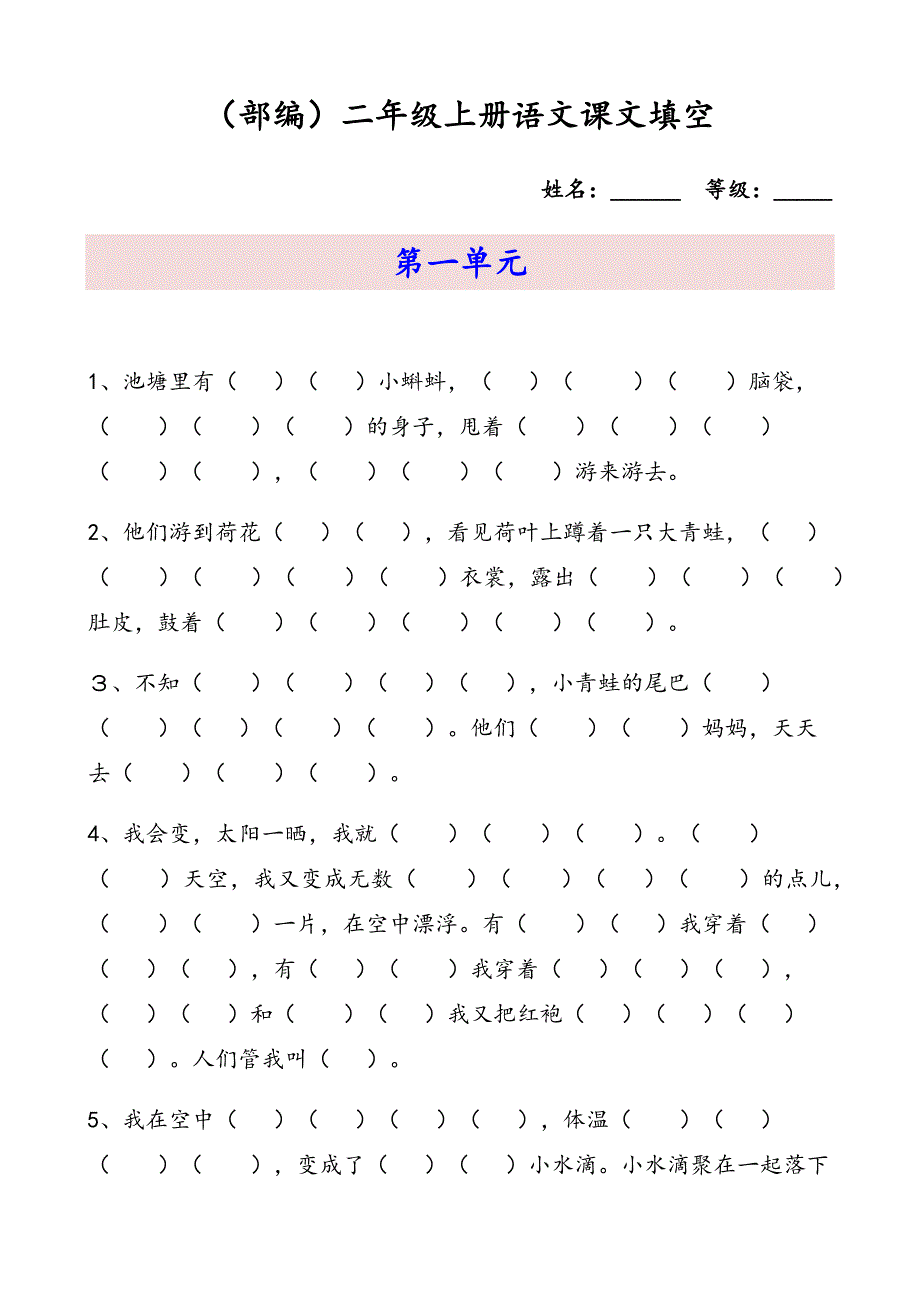 （部编）二年级上册语文课文填空
姓名：______ 等级：_____
第一单元
1、池塘里有（ ）（ ）小蝌蚪，（ ）（ ）（ ）脑袋，
（ ）（ ）（ ）的身子，甩着（ ）（ ）（ ）
（ ）（ ），（ ）（ ）（ ）游来游去。
2、他们游到荷花（ ）（ ），看见荷叶上蹲着一只大青蛙，（ ）
（ ）（ ）（ ）（ ）衣裳，露出（ ）（ ）（ ）
肚皮，鼓着（ ）（ ）（ ）（ ）（ ）。
３、不知（ ）（ ）（ ）（ ），小青蛙的尾巴（ ）
（ ）（ ）（ ）（ ）。他们（ ）（ ）妈妈，天天
去（ ）（ ）（ ）。
4、我会变，太阳一晒，我就（ ）（ ）（ ）。（ ）
（ ）天空，我又变成无数（ ）（ ）（ ）（ ）的点儿，
（ ）（ ）一片，在空中漂浮。有（ ）（ ）我穿着（ ）
（ ）（ ），有（ ）（ ）我穿着（ ）（ ）（ ），
（ ）（ ）和（ ）（ ）我又把红袍（ ）（ ）（ ）
（ ）。人们管我叫（ ）。
5、我在空中（ ）（ ）（ ）（ ），体温（ ）（ ）
（ ）（ ），变成了（ ）（ ）小水滴。小水滴聚在一起落下